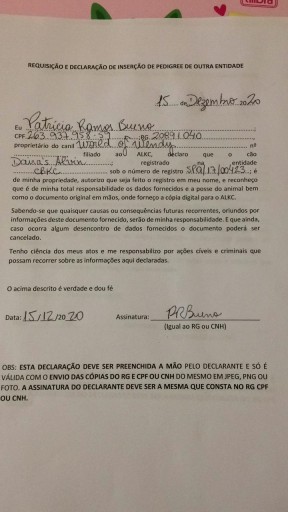 REQUISIÇÃO E DECLARAÇÃO DE INSERÇÃO DE PEDIGREE DE OUTRA ENTIDADE
15 de Dezembro 2020
Eu Patricia Ramos Bueno
CPF 263.937.958-27 RG 20891040
proprietário do canil World of Wendy nº
filiado ao ALKC, declaro que o cão
registrado na entidade
CBKC sob o número de registro SPA/17/00423, é
de minha propriedade, autorizo que seja feito o registro em meu nome, e reconheço
que é de minha total responsabilidade os dados fornecidos e a posse do animal bem
como o documento original em mãos, onde forneço a cópia digital para o ALKC.
Sabendo-se que quaisquer causas ou consequências futuras recorrentes, oriundos por
informações deste documento fornecido, serão de minha responsabilidade. E que ainda,
caso ocorra algum desencontro de dados fornecidos o documento poderá ser
cancelado.
Tenho ciência dos meus atos e me responsabilizo por ações cíveis e criminais que
possam recorrer sobre as informações aqui declaradas.
O acima descrito é verdade e dou fé
Data: 15/12/2020 Assinatura: PRBueno
(Igual ao RG ou CNH)
OBS: ESTA DECLARAÇÃO DEVE SER PREENCHIDA A MÃO PELO DECLARANTE E SÓ É
VÁLIDA COM O ENVIO DAS CÓPIAS DO RG E CPF OU CNH DO MESMO EM JPEG, PNG OU
FOTO. A ASSINATURA DO DECLARANTE DEVE SER A MESMA QUE CONSTA NO RG CPF
OU CNH.